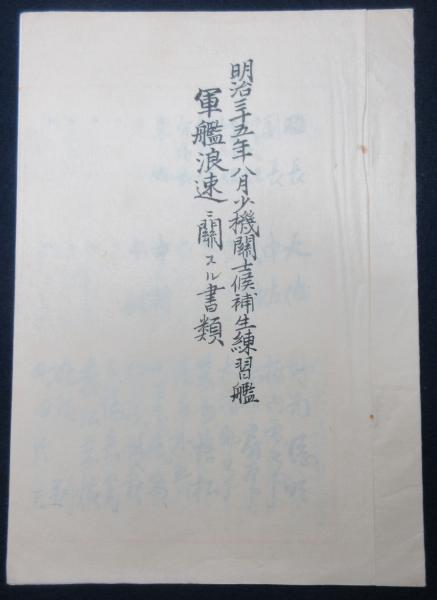 明治三十五年八月少機關士候補生練習艦
軍艦浪速ニ關スル書類